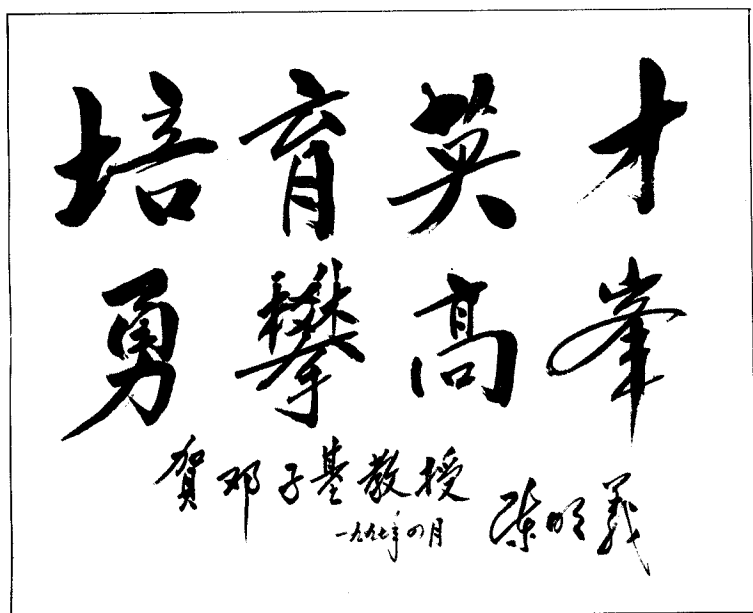 培育英才
勇攀高峯
賀邓子基教授
一九九七年四月
陈明義